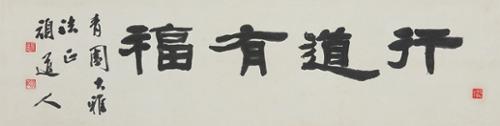 行道有福
青園大雅
法正
道人